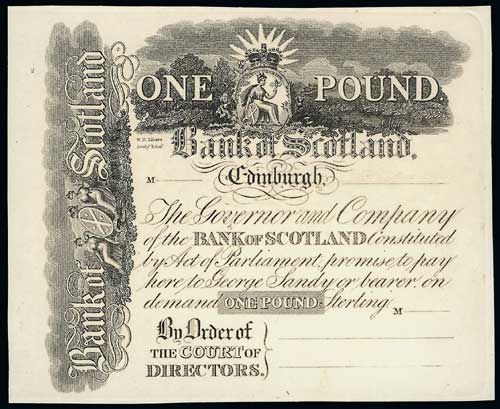 Bank of Scotland
ONE POUND.
W.H. Lizars
Bank of Scotland,
M
Edinburgh,
The Governor and Company
of the BANK OF SCOTLAND Constituted
by Act of Parliament, promise to pay
here to George Sandy or bearer, on
demand ONE POUND Sterling.
M
By Order of
THE COURT OF
DIRECTORS.